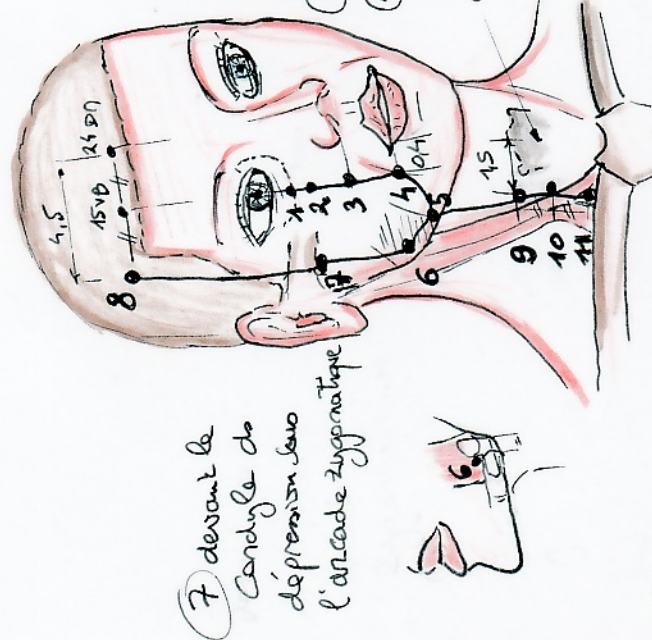 4,5
15VB
24 DM
8
1
2
3
4
0,4
5
6
7
1,5
9
10
11
7 devant le
Condyle ds
dépression sous
l'arcade zygomatique
6